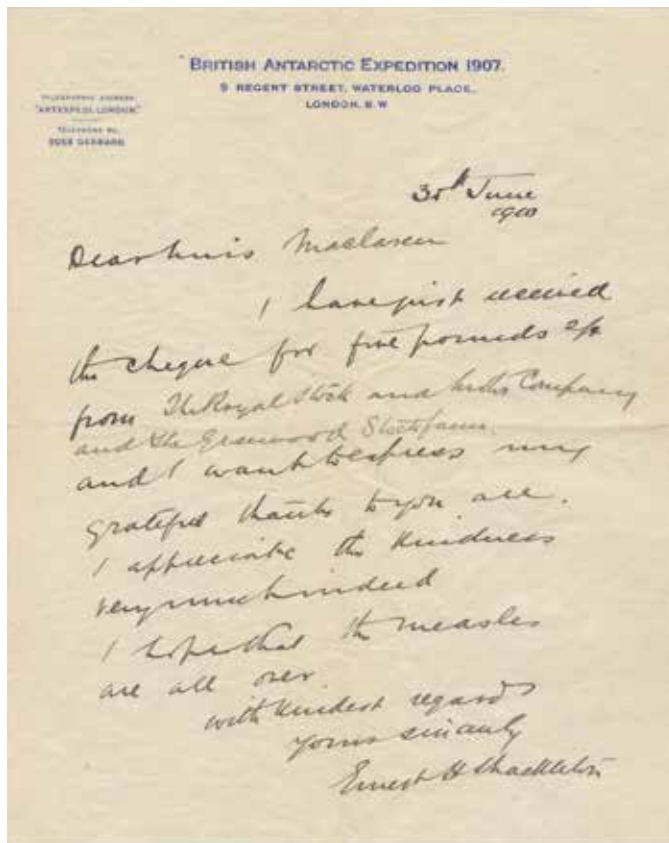 BRITISH ANTARCTIC EXPEDITION 1907.
9 REGENT STREET, WATERLOO PLACE,
LONDON, S.W
TELEGRAPHIC ADDRESS
"ANTEXPEDI, LONDON."
TELEPHONE No.
GERRARD.
30th June
1910
Dear Miss Maclaren
I have just received
the cheque for five pounds
from The Royal Stock and Company
and the Greenwood Stock
and I want to express my
grateful thanks to you all.
I appreciate the kindness
very much indeed
I hope that the measles
are all over
with kindest regards
Yours sincerely
Ernest H Shackleton